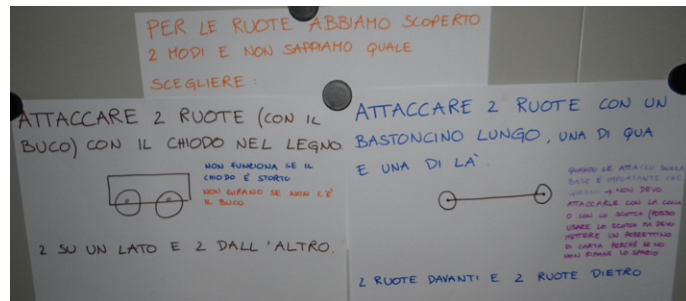 PER LE RUOTE ABBIAMO SCOPERTO
2 MODI E NON SAPPIAMO QUALE
SCEGLIERE:
ATTACCARE 2 RUOTE (CON IL
BUCO) CON IL CHIODO NEL LEGNO.
NON FUNZIONA SE IL
CHIODO È STORTO
NON GIRANO SE NON C'È
IL BUCO
2 SU UN LATO E 2 DALL'ALTRO.
ATTACCARE 2 RUOTE CON UN
BASTONCINO LUNGO, UNA DI QUA
E UNA DI LÀ
QUANDO LE ATTACCO SULLA
BASE È IMPORTANTE CHE
GIRINO → NON DEVO
ATTACCARLE CON LA COLLA
O CON LO SCOTCH (POSSO
USARE LO SCOTCH MA DEVO
METTERE UN PEZZETTINO
DI CARTA PERCHÉ SE NO
NON RIMANE LO SPAZIO
2 RUOTE DAVANTI E 2 RUOTE DIETRO